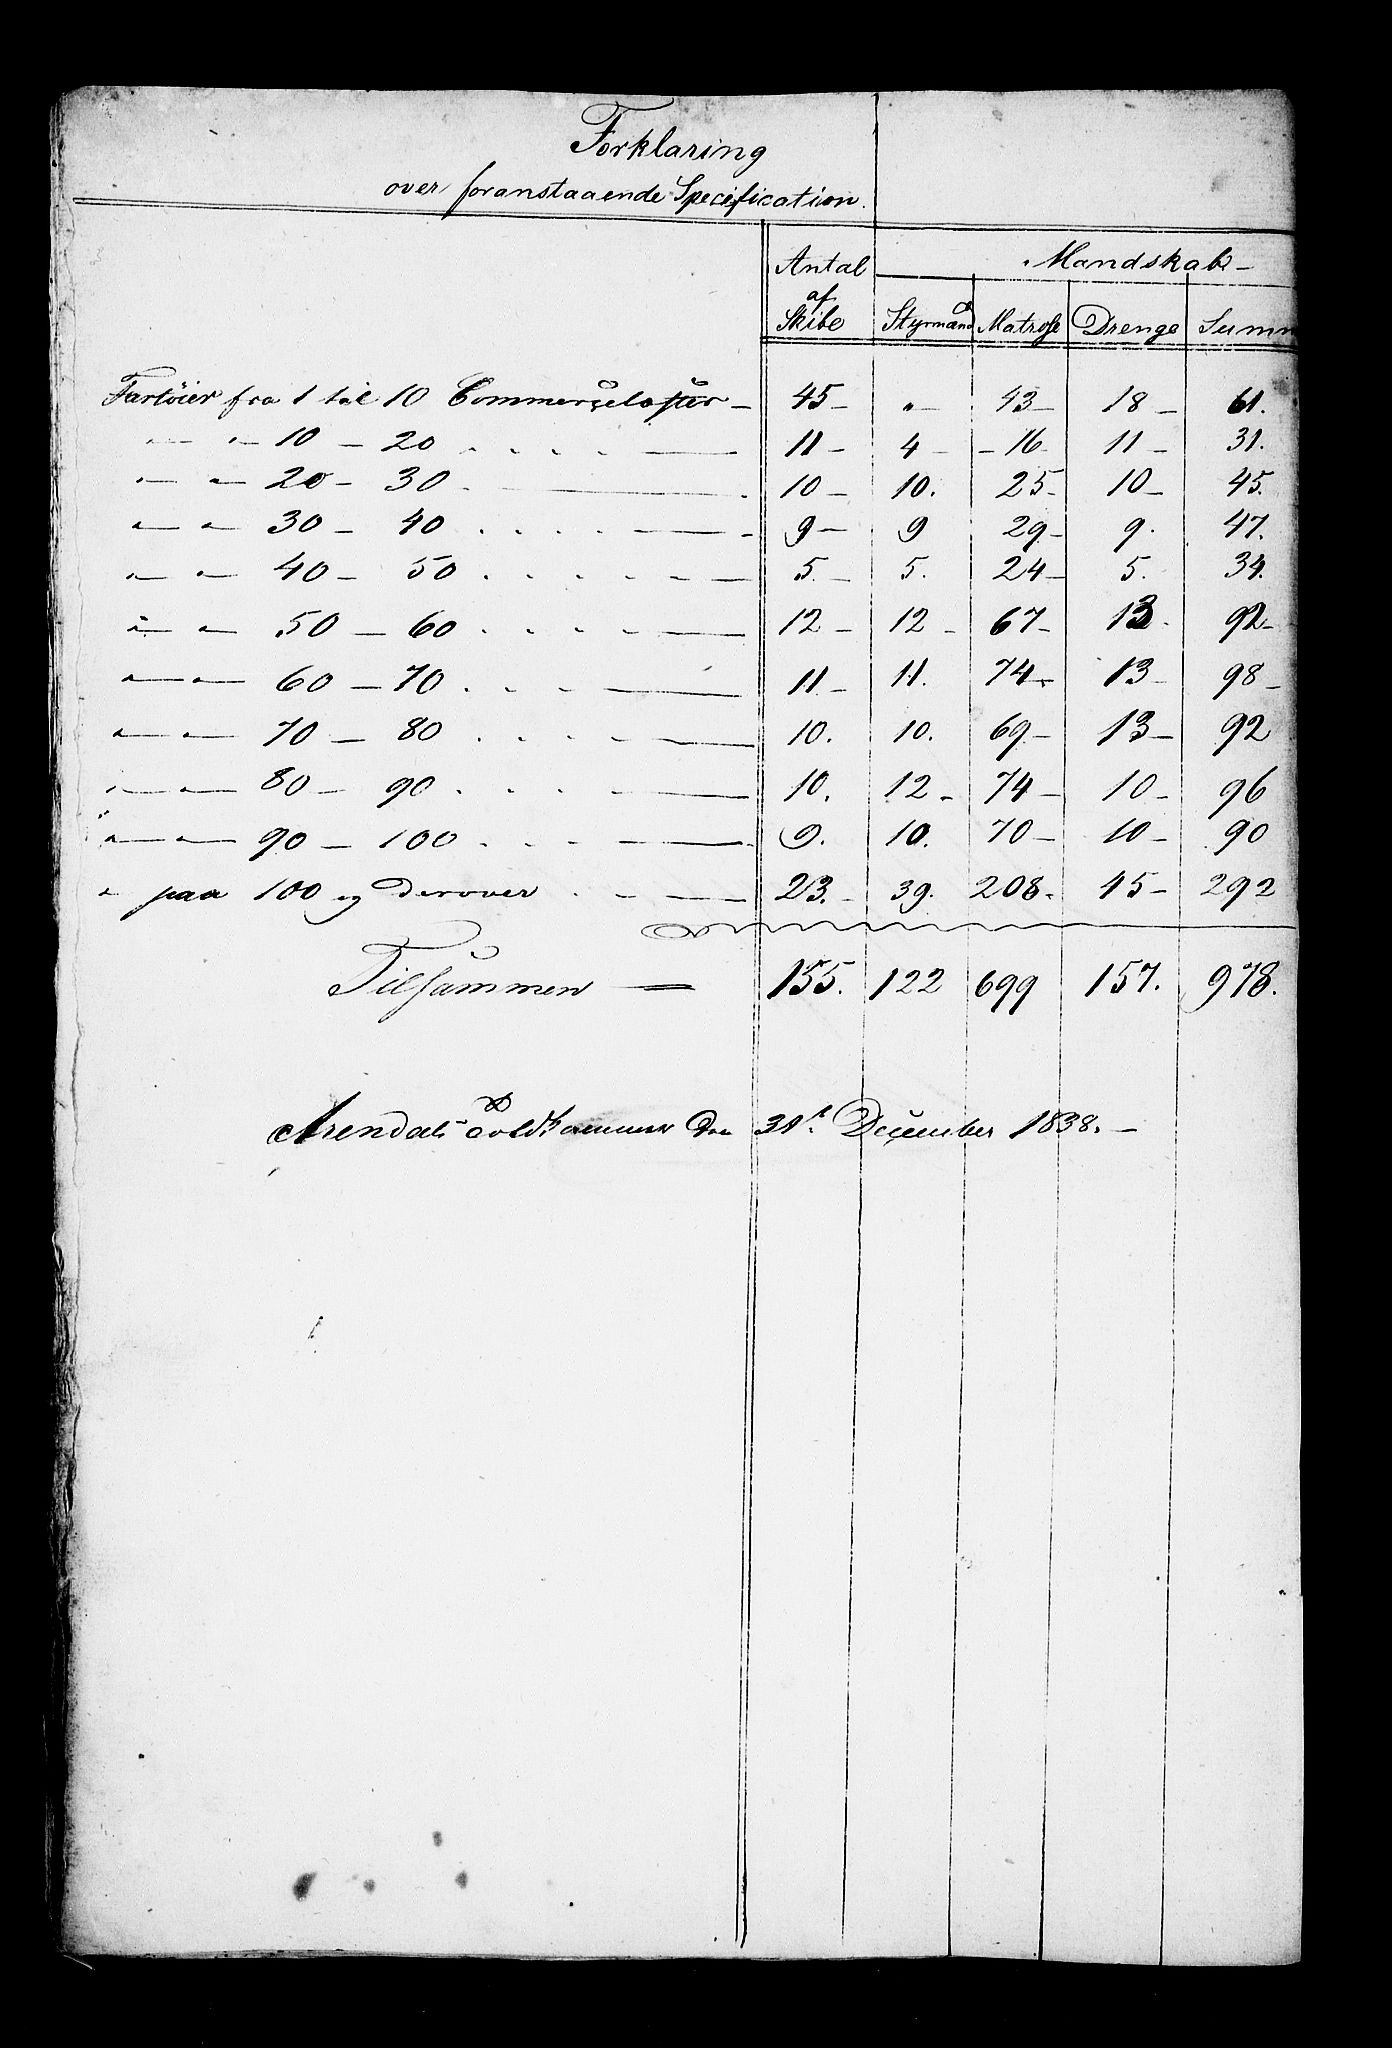 Forklaring
over foranstaaende Specification.
Antal af Skibe
Mandskab
Styrmænd Matrose Drenge Summ
Fartöier fra 1 til 10 Commercelæster 45 " 43 18 61.
" " 10 - 20 11 4 16 11 31.
" " 20 - 30 10 10. 25 10 45.
" " 30 - 40 9 9 29 9. 47.
" " 40 - 50 5. 5. 24 5. 34.
" " 50 - 60 12 12 67 13 92
" " 60 - 70 11 11. 74 13 98
" " 70 - 80 10. 10. 69 13 92
" " 80 - 90 10. 12 74 10 96
" " 90 - 100 9. 10. 70 10 90
" paa 100 og derover 23. 39. 208 45 292
Tilsammen 155. 122 699 157. 978.
Arendals Toldkammer den 31t December 1838.